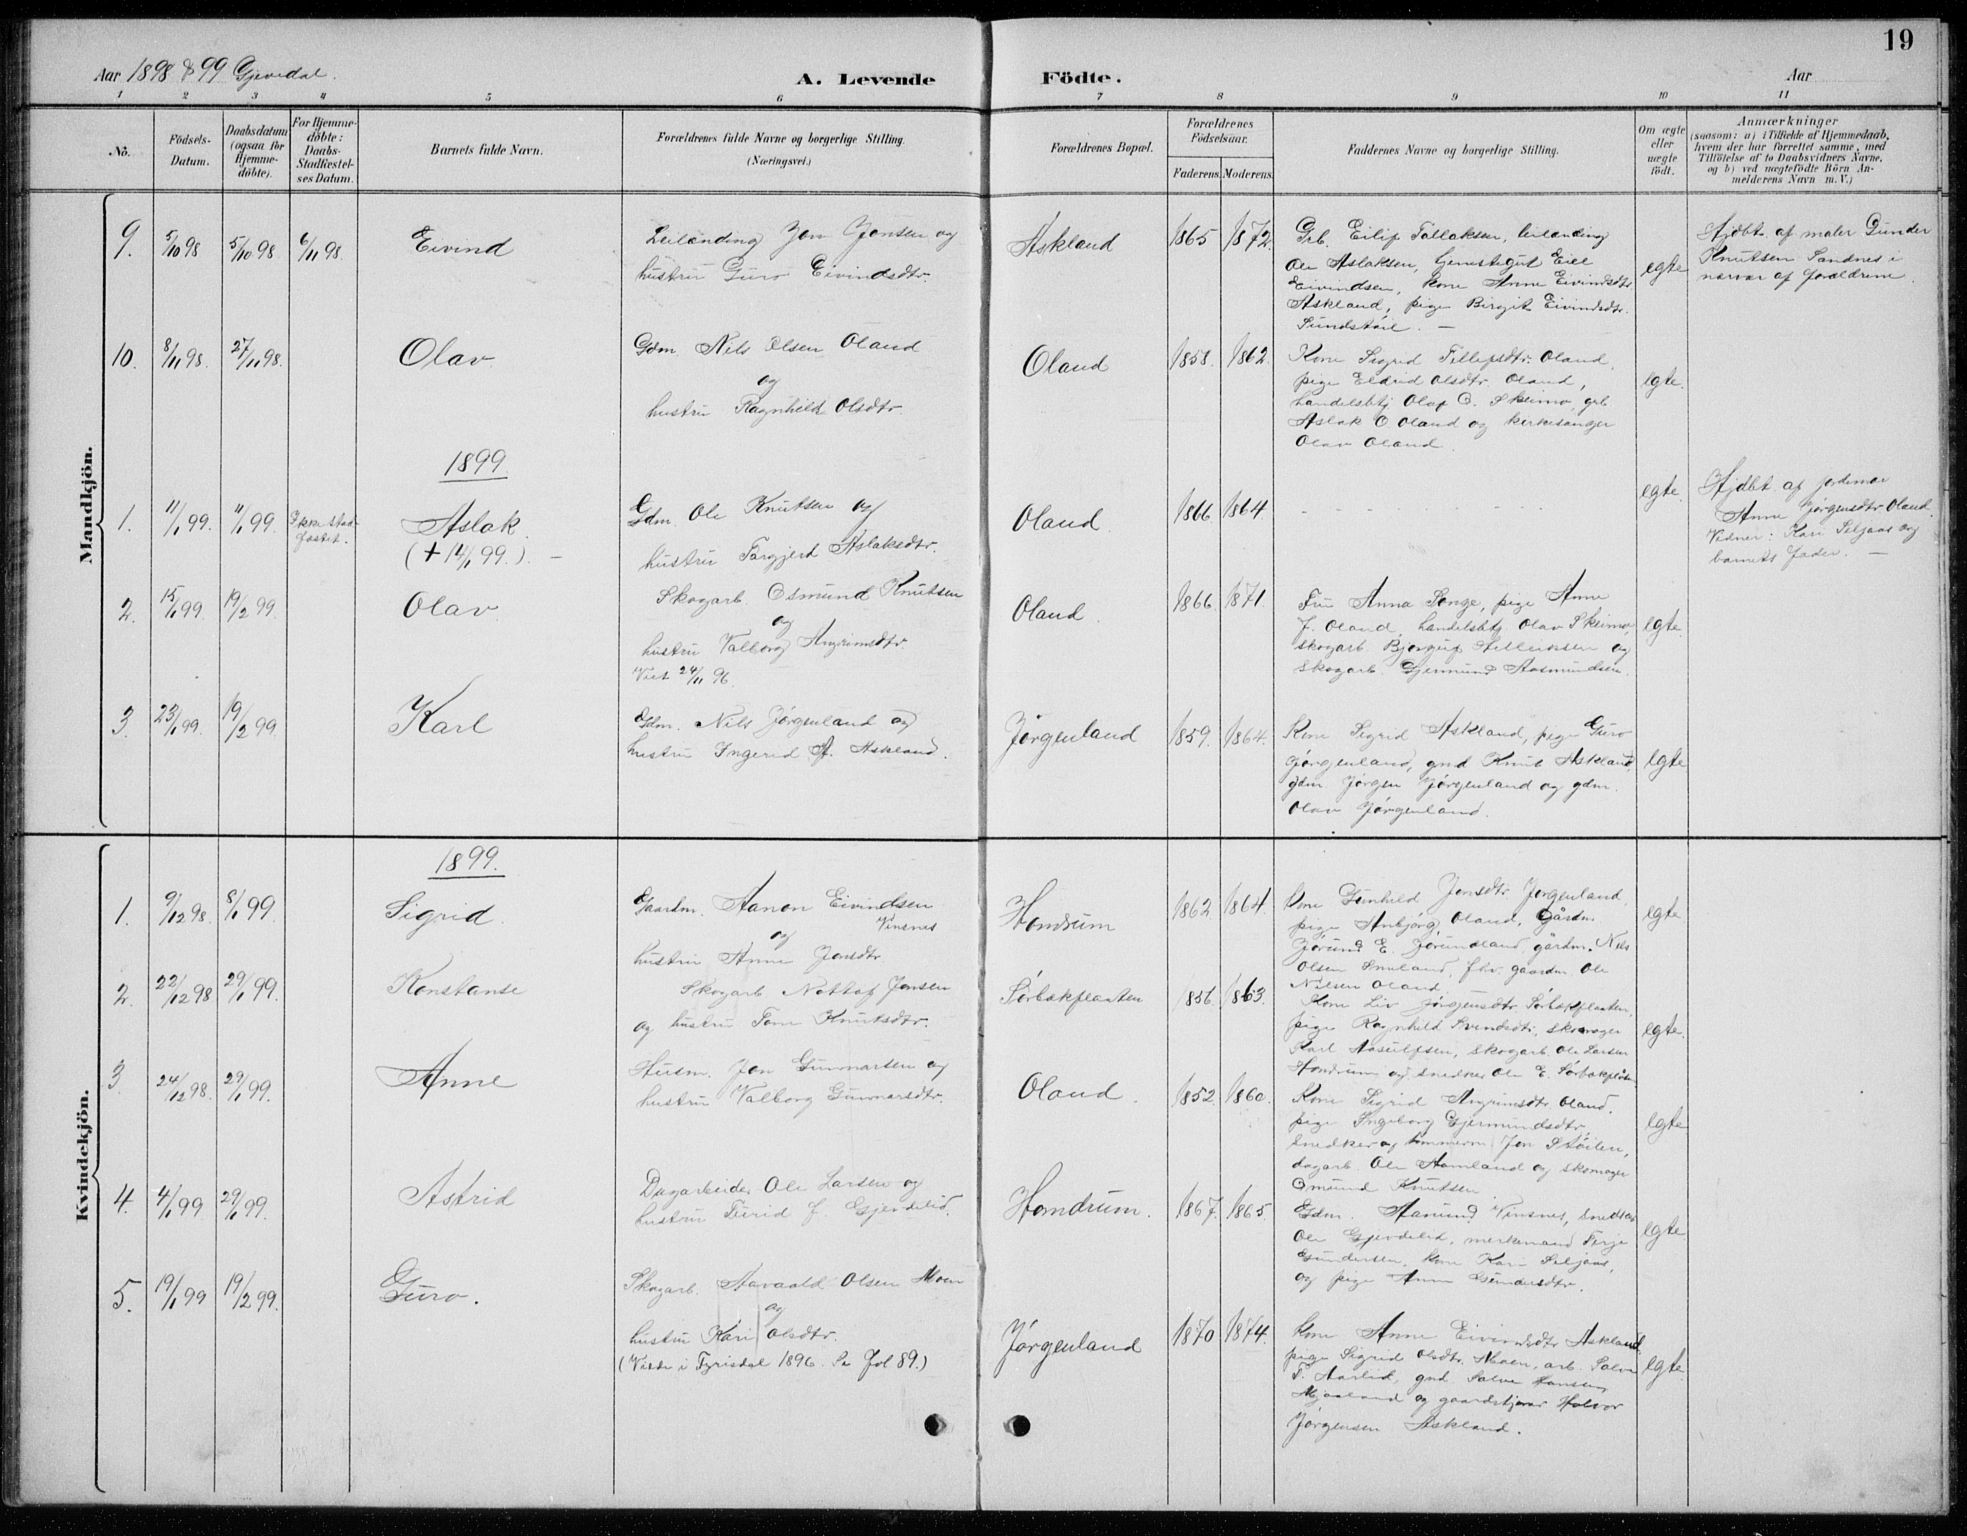 19
Aar 1898 & 99 Gjevedal. A. Levende Födte. Aar
1 2 3 4 5 6 7 8 9 10 11
No.
Födsels-Datum.
Daabsdatum (ogsaa för Hjemme-döbte).
For Hjemme-döbte: Daabs-Stadfæstel-ses Datum.
Barnets fulde Navn.
Forældrenes fulde Navne og borgerlige Stilling.
(Næringsvei.)
Forældrenes Bopæl.
Forældrenes Födselsaar.
Faderens. Moderens.
Faddernes Navne og borgerlige Stilling.
Om ægte eller uægte födt.
Anmærkninger
(saasom: a) i Tilfælde af Hjemmedaab, hvem der har forrettet samme, med Tilföielse af to Daabsvidners Navne, og b) ved uægtefödte Börn An-melderens Navn m. V.)
Mandkjön.
9. 5/10 98 5/10 98 6/11 98 Eivind
Leilænding Jon Jensen og
hustru Guro Eivindsdtr.
Askland 1865 1872
Grb. Eilif Tallaksen, leilænding
Ole Aslaksen, Eile
Eivindsen, kone Anne Eivindsdtr
Askland, pige Birgit Eivindsdtr.
Sundstøil. —
egte
Hjdbt. af maler Gunder
Knutsen Sandnes i
nærvær af forældrene.
10. 8/11 98. 27/11 98. Olav
Gdm. Nils Olsen Oland
og
hustru Ragnhild Olsdtr.
Oland 1858. 1862.
Kone Sigrid Tellefsdtr. Oland,
pige Eldrid Olsdtr. Oland,
handelsbtj Olaf O. Skeimo, grb
Aslak O Oland og kirkesanger
Olav Oland.
egte.
1899.
1. 11/1 99. 11/1 99 Ikke stad-
fæstet.
Aslak.
(+ 14/1 99.). —
Gdm. Ole Knutsen og
hustru Targjerd Aslaksdtr.
Oland. 1866 1864
egte.
Hjdbt af jordemor
Anne Jørgensdtr Oland.
Vidner: Kari Siljaas og
barnets fader. —
2. 15/1 99. 19/2 99 Olav
Skogarb Osmund Knutsen
og
hustru Valborg Angrimsdtr.
Viet 24/11 96.
Oland. 1866 1871.
Fru Anna Songe, pige Anne
J. Oland, handelsbtj. Olav Skeimo,
skogarb. Bjorgulf Tellefsen og
skogarb. Gjermund Aasmundsen.
egte.
3. 23/1 99. 19/2 99 Karl
Gdm. Nils Jørgenland og
hustru Ingerid A. Askland.
Jørgenland 1859. 1864.
Kone Sigrid Askland, pige Guro
Jørgenland, gmd Knut Askland,
gdm. Jørgen Jørgenland og gdm.
Olav Jørgenland.
egte
Kvindekjön.
1899.
1. 9/12 98. 8/1 99. Sigrid.
Gaardm. Aanon Eivindsen
Vinsnes
og
hustru Anne Jonsdtr.
Homdrum 1862 1864.
Kone Gunhild Jonsdtr. Jørgenland,
pige Anbjørg Oland, Gårdm.
Jørund E. Jørundland, gårdm. Nils
Olsen Smeland, fhv. gaardm. Ole
Nilsen Oland.
egte
2. 22/12 98 29/1 99. Konstanse
Skogarb Nottof Jensen
og hustru Tone Knutsdtr.
Sørbøkplasten 1856. 1863.
Kone Liv Jørgensdtr Sørbøkplasten,
pige Ragnhild Svendsdtr, skomager
Karl Aasulfsen, skogarb. Ole Larsen
Homdrum og snedker Ole E. Sørbøkplasten
egte.
3 24/12 98. 29/1 99. Anne
Husm. Jon Gunnarsen og
hustru Valborg Gunnarsdtr.
Oland. 1852. 1860.
Kone Sigrid Angrimsdtr Oland.
pige Ingeborg Gjermundsdtr,
snedker og tømmerm. Jon Støilen,
dagarb. Ole Aamland og skomager
Omund Knutsen
egte
4. 4/1 99 29/1 99. Astrid
Dagarbeider Ole Larsen og
hustru Turid J. Gjevdelid.
Homdrum. 1867. 1865.
Gdm. Aanund Vinsnes, snedker
Ole Gjevdelid, merkemand Terje
Gundersen, kone Kari Siljaas,
og pige Anne Gundersdtr.
egte
5. 19/1 99 19/2 99. Guro.
Skogarb. Aavaald Olsen Moen
og
hustru Kari Olsdtr.
(Viede i Fyrisdal 1896. Se fol 89.)
Jørgenland 1870 1874.
Kone Anne Eivindsdtr Askland,
pige Sigrid Olsdtr. Moen, arb. Salve
T. Aarlid, gmd Salve Hansen
Mjaaland og gaardstjener Halvor
Jørgensen Askland.
egte